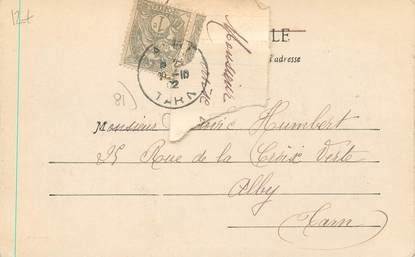 12+
LE
l'adresse
1
81)
TARN
Monsieur
Monsieur Humbert
25 Rue de la Croix Verte
Alby
(Tarn)